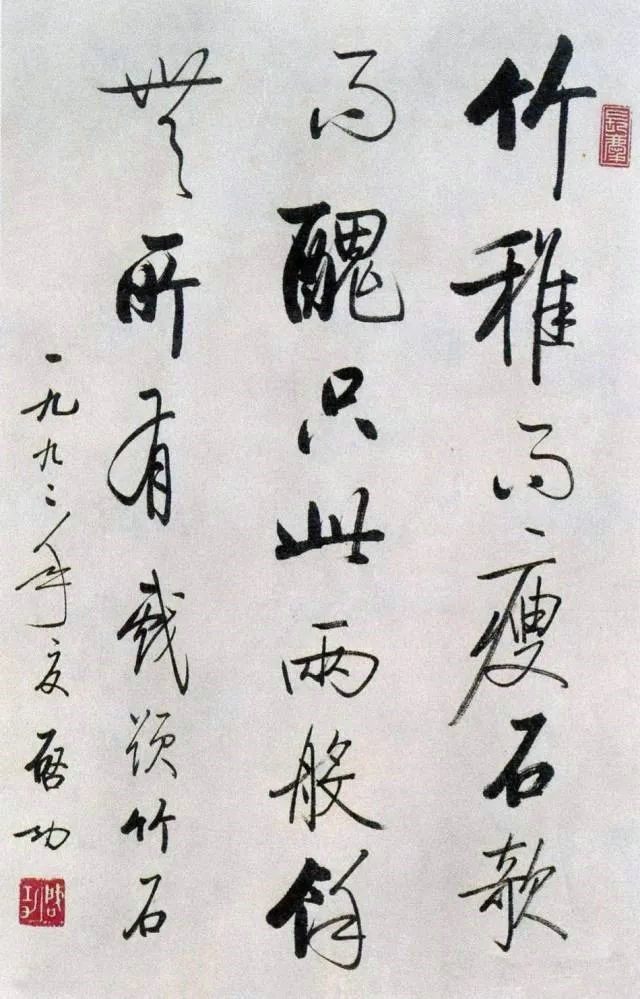 竹稚而瘦石欹
而醜只此兩般餘
無所有戲題竹石
一九九二年夏啓功